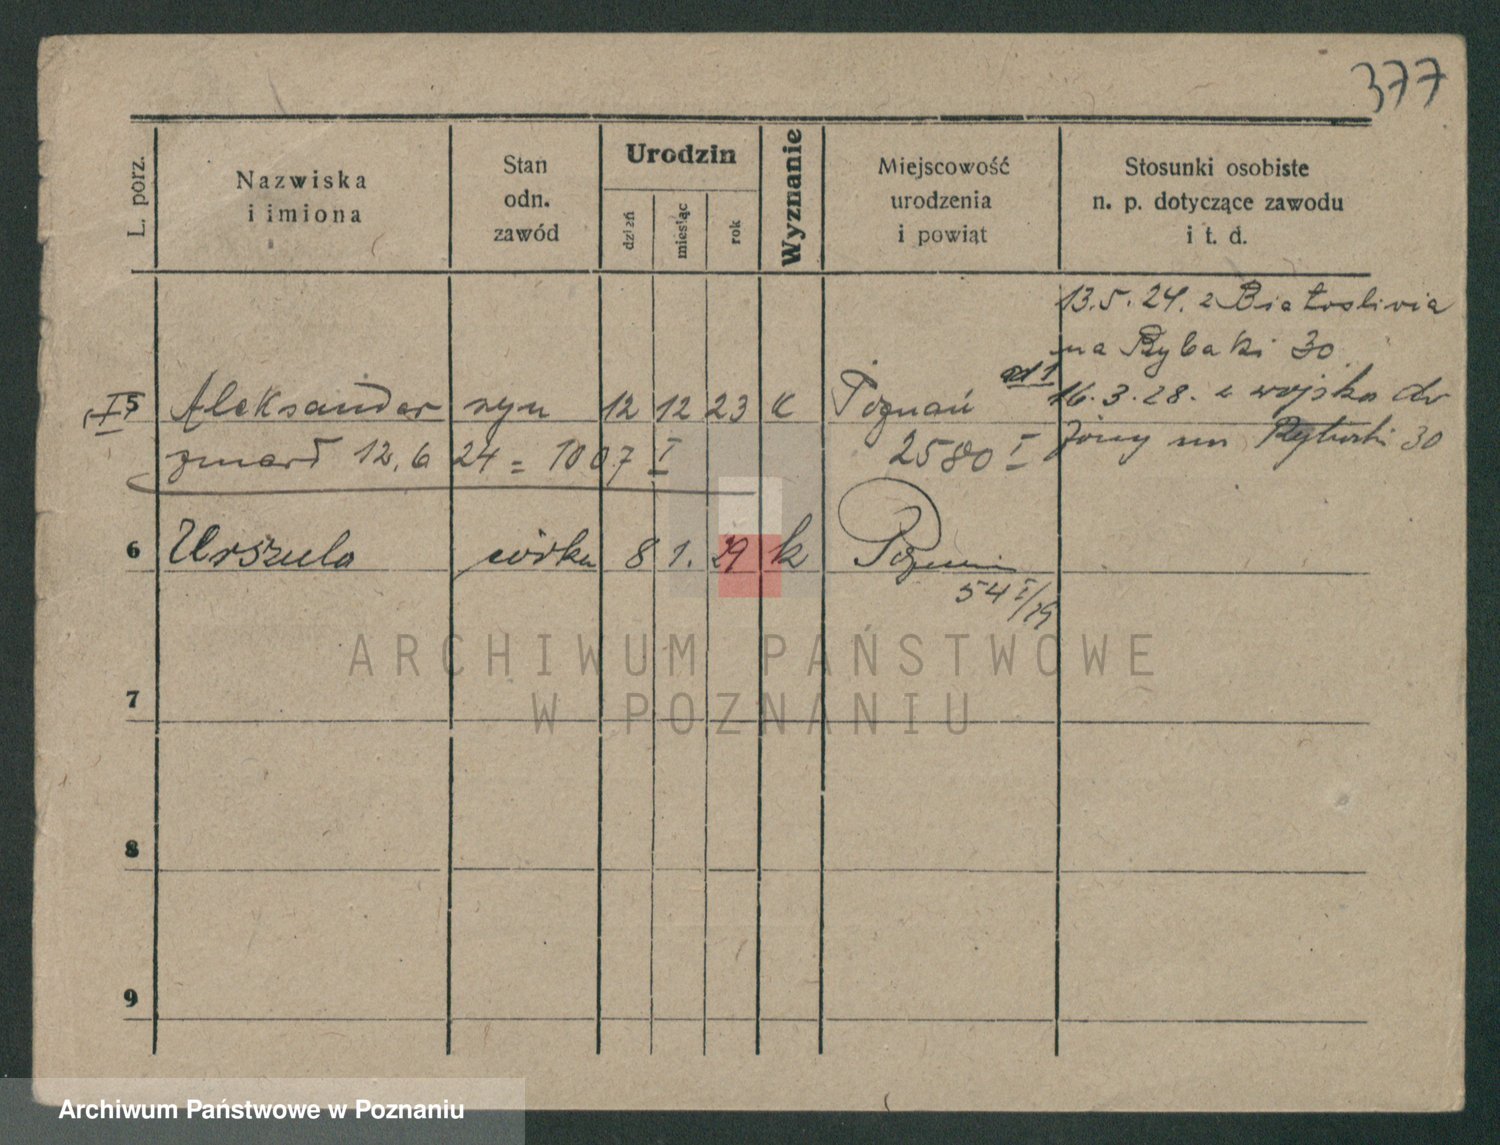 377
L. porz.
Nazwiska
i imiona
Stan
odn.
zawód
Urodzin
dzień
miesiąc
rok
Wyznanie
Miejscowość
urodzenia
i powiąt
Stosunki osobiste
n. p. dotyczące zawodu
i t. d.
13.5.24. z Białosliwia
na Rybaki 30
od 1 16.3.28. z wojska do
żony na Rybaki 30
I 5 Aleksander syn 12 12 23 k Poznań
zmarł 12.6 24 = 1007 I 2580 I
6 Urszula córka 8 1. 29 k Poznań
54 I/29
7
8
9
ARCHIWUM PAŃSTWOWE
W POZNANIU
Archiwum Państwowe w Poznaniu